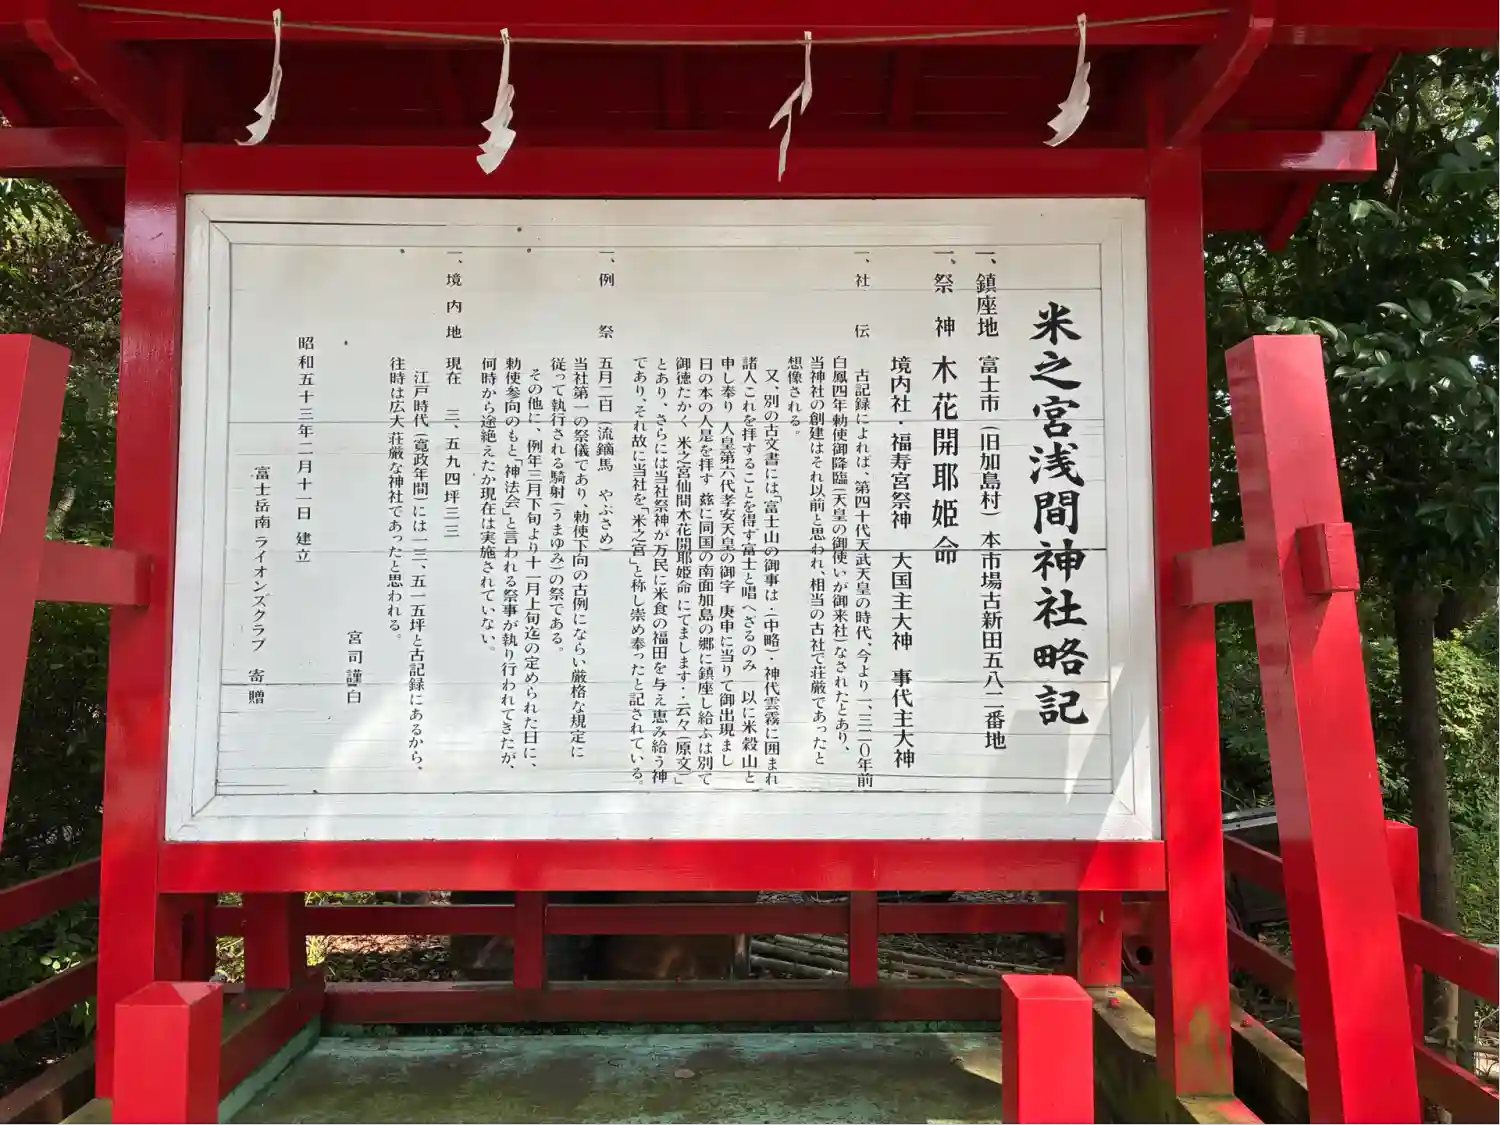 米之宮浅間神社略記
一、鎮座地 富士市(旧加島村) 本市場古新田五八二番地
一、祭神 木花開耶姫命
境内社・福寿宮祭神 大国主大神 事代主大神
一、社伝 古記録によれば、第四十代天武天皇の時代、今より一、三二〇年前
白鳳四年勅使御降臨(天皇の御使いが御来社)なされたとあり、
当神社の創建はそれ以前と思われ、相当の古社で荘厳であったと
想像される。
又、別の古文書には「富士山の御事は・(中略)・神代雲霧に囲まれ
諸人これを拝することを得ず富士と唱へざるのみ 以に米穀山と
申し奉り人皇第六代孝安天皇の御字 庚申に当りて御出現まし
日の本の人是を拝す 茲に同国の南面加島の郷に鎮座し給ふは別て
御徳たかく米之宮仙間木花開耶姫命にてまします・・云々(原文)」
とあり、さらには当社祭神が万民に米食の福田を与え恵み給う神
であり、それ故に当社を「米之宮」と称し崇め奉ったと記されている。
一、例祭 五月二日(流鏑馬 やぶさめ)
当社第一の祭儀であり、勅使下向の古例にならい厳格な規定に
従って執行される騎射(うまゆみ)の祭である。
その他に、例年三月下旬より十一月上旬迄の定められた日に、
勅使参向のもと「神法会」と言われる祭事が執り行われてきたが、
何時から途絶えたか現在は実施されていない。
一、境内地 現在 三、五九四坪三三
江戸時代(寛政年間)には一三、五一五坪と古記録にあるから、
往時は広大荘厳な神社であったと思われる。
宮司謹白
昭和五十三年二月十一日 建立
富士岳南ライオンズクラブ 寄贈